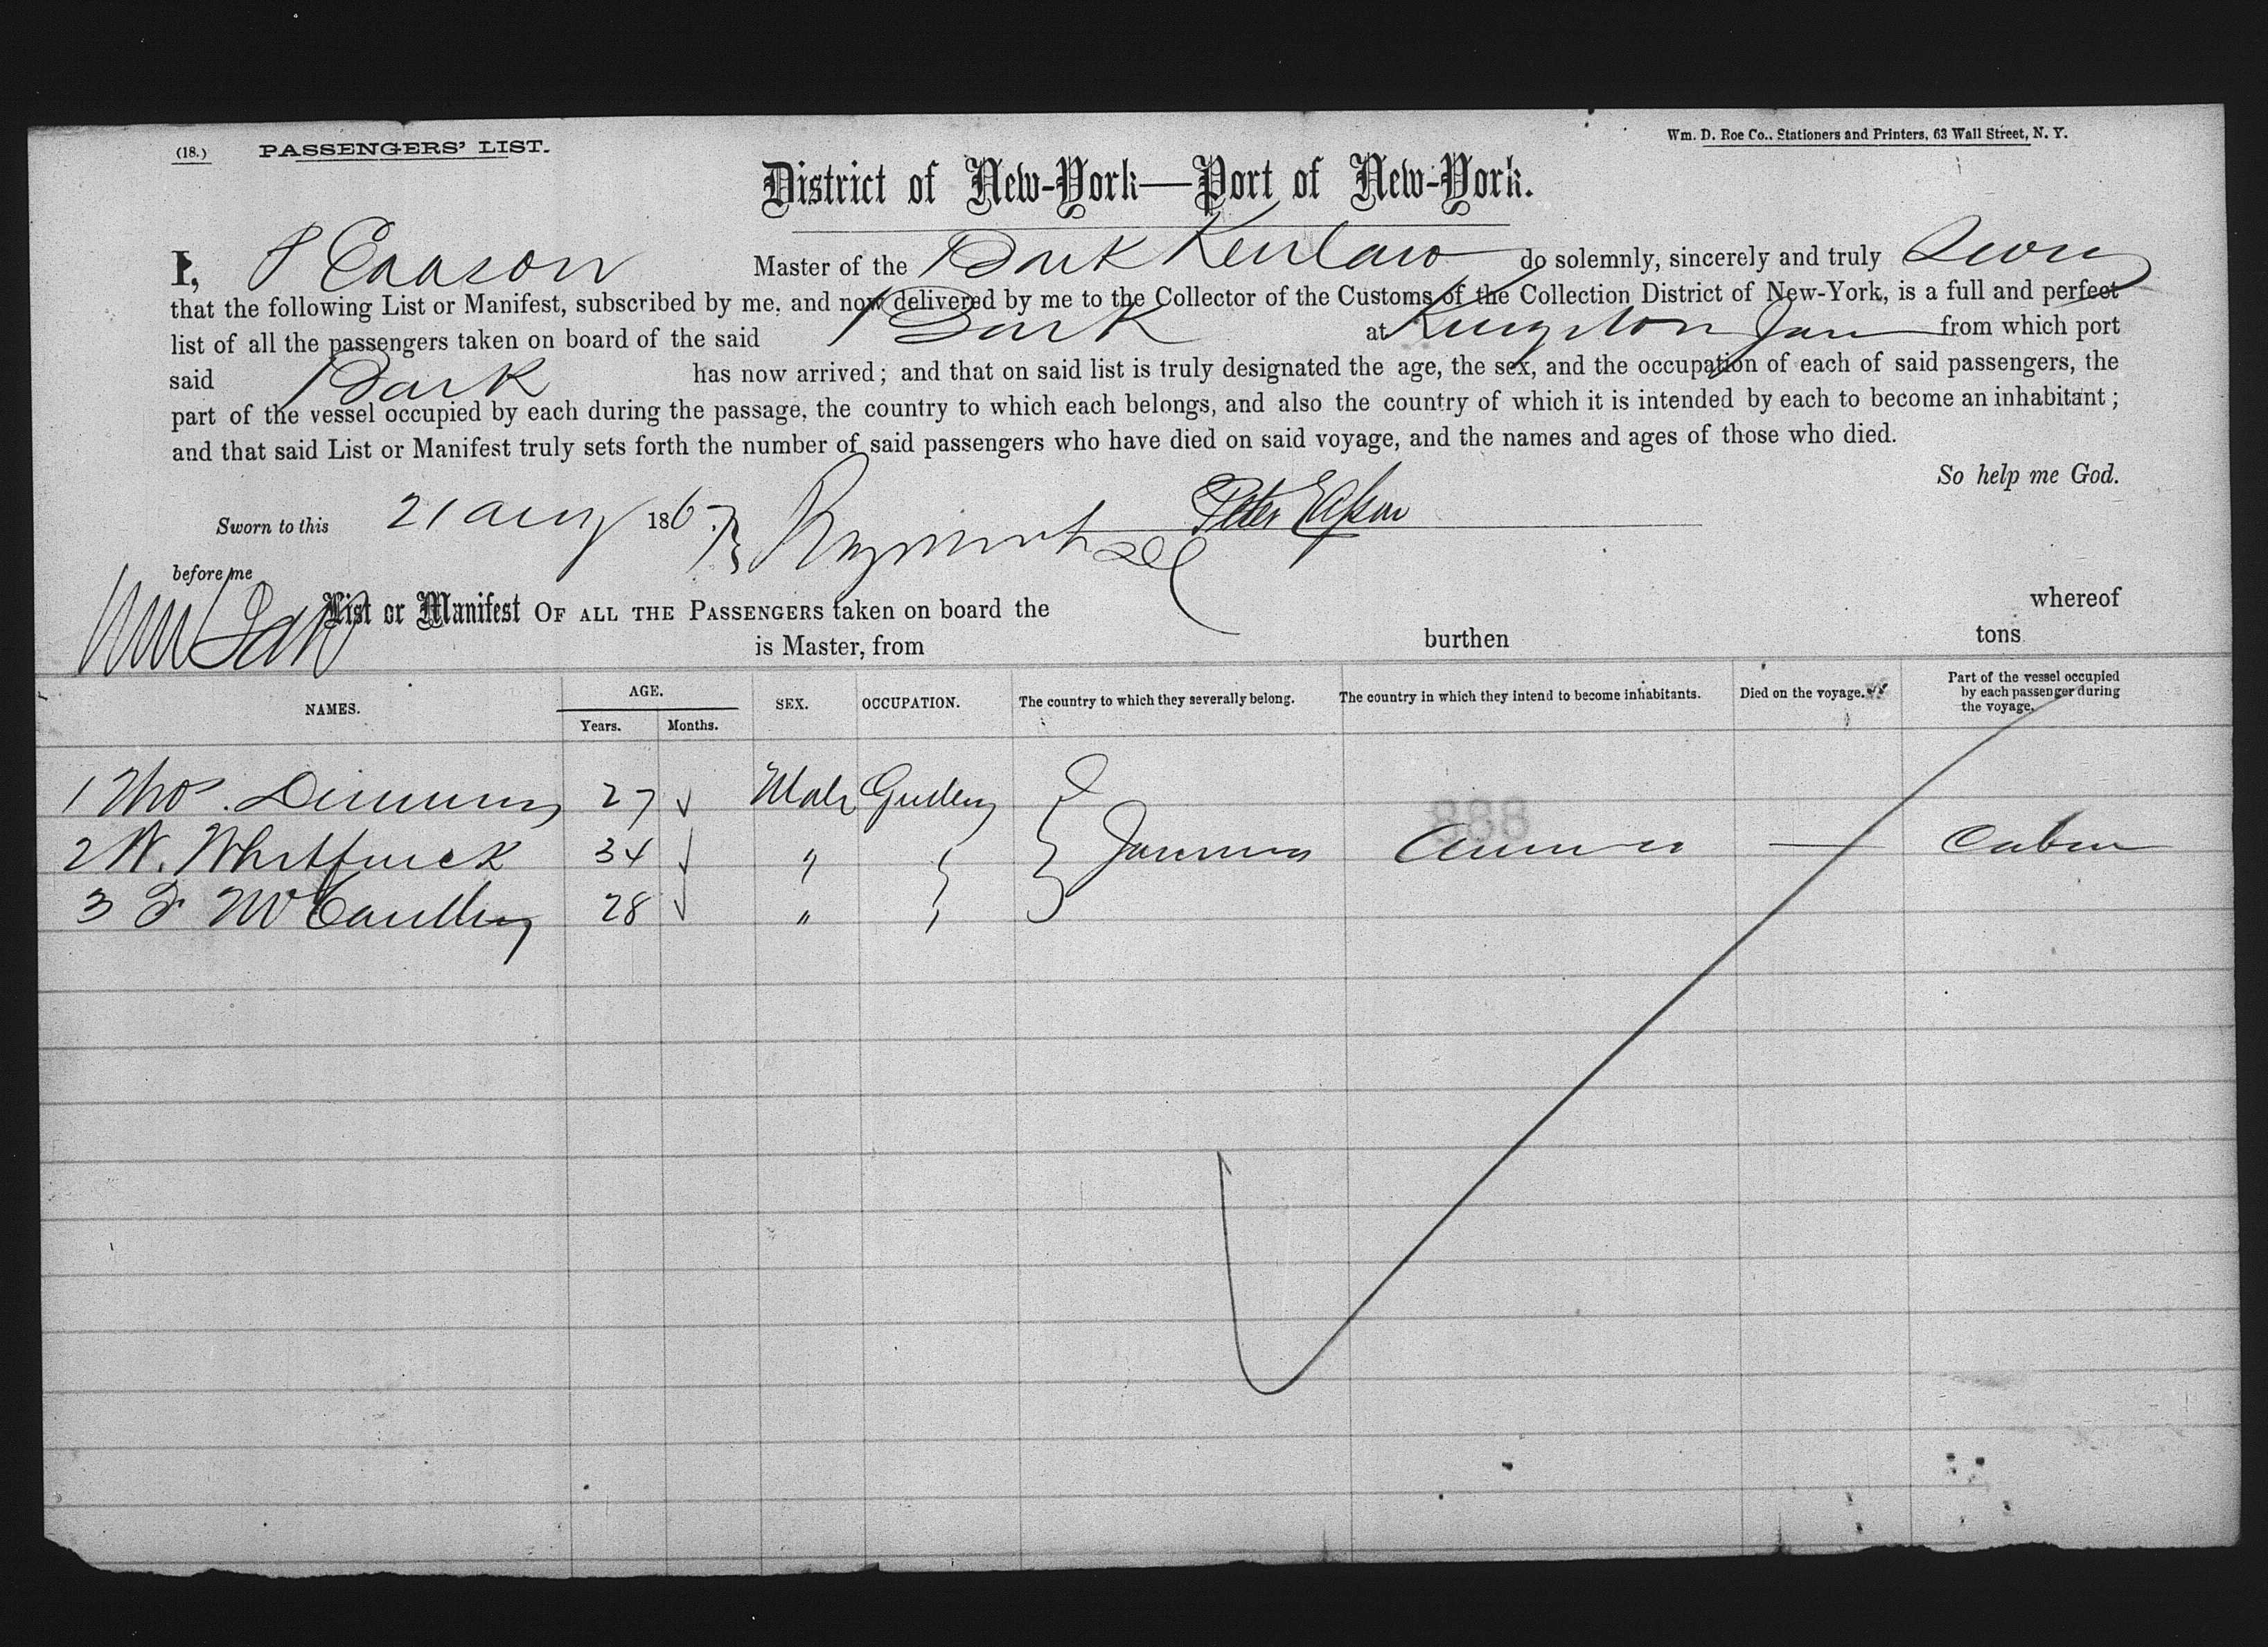 (18.) PASSENGERS' LIST.
Wm. D. Roe Co., Stationers and Printers, 63 Wall Street, N. Y.
District of New-York—Port of New-York.
I, P Eaason Master of the Bark Kenlaw do solemnly, sincerely and truly Swear
that the following List or Manifest, subscribed by me, and now delivered by me to the Collector of the Customs of the Collection District of New-York, is a full and perfect
list of all the passengers taken on board of the said Bark at Kingston Jam from which port
said Bark has now arrived; and that on said list is truly designated the age, the sex, and the occupation of each of said passengers, the
part of the vessel occupied by each during the passage, the country to which each belongs, and also the country of which it is intended by each to become an inhabitant;
and that said List or Manifest truly sets forth the number of said passengers who have died on said voyage, and the names and ages of those who died.
So help me God.
Sworn to this 21 Aug 186 Peter
before me
List or Manifest OF ALL THE PASSENGERS taken on board the whereof
is Master, from burthen tons
NAMES. AGE. Years. Months. SEX. OCCUPATION. The country to which they severally belong. The country in which they intend to become inhabitants. Died on the voyage. Part of the vessel occupied by each passenger during the voyage.
1 Thos. 27 Male
888
2 W. 34 " Jamaica America — Cabin
3 28 "